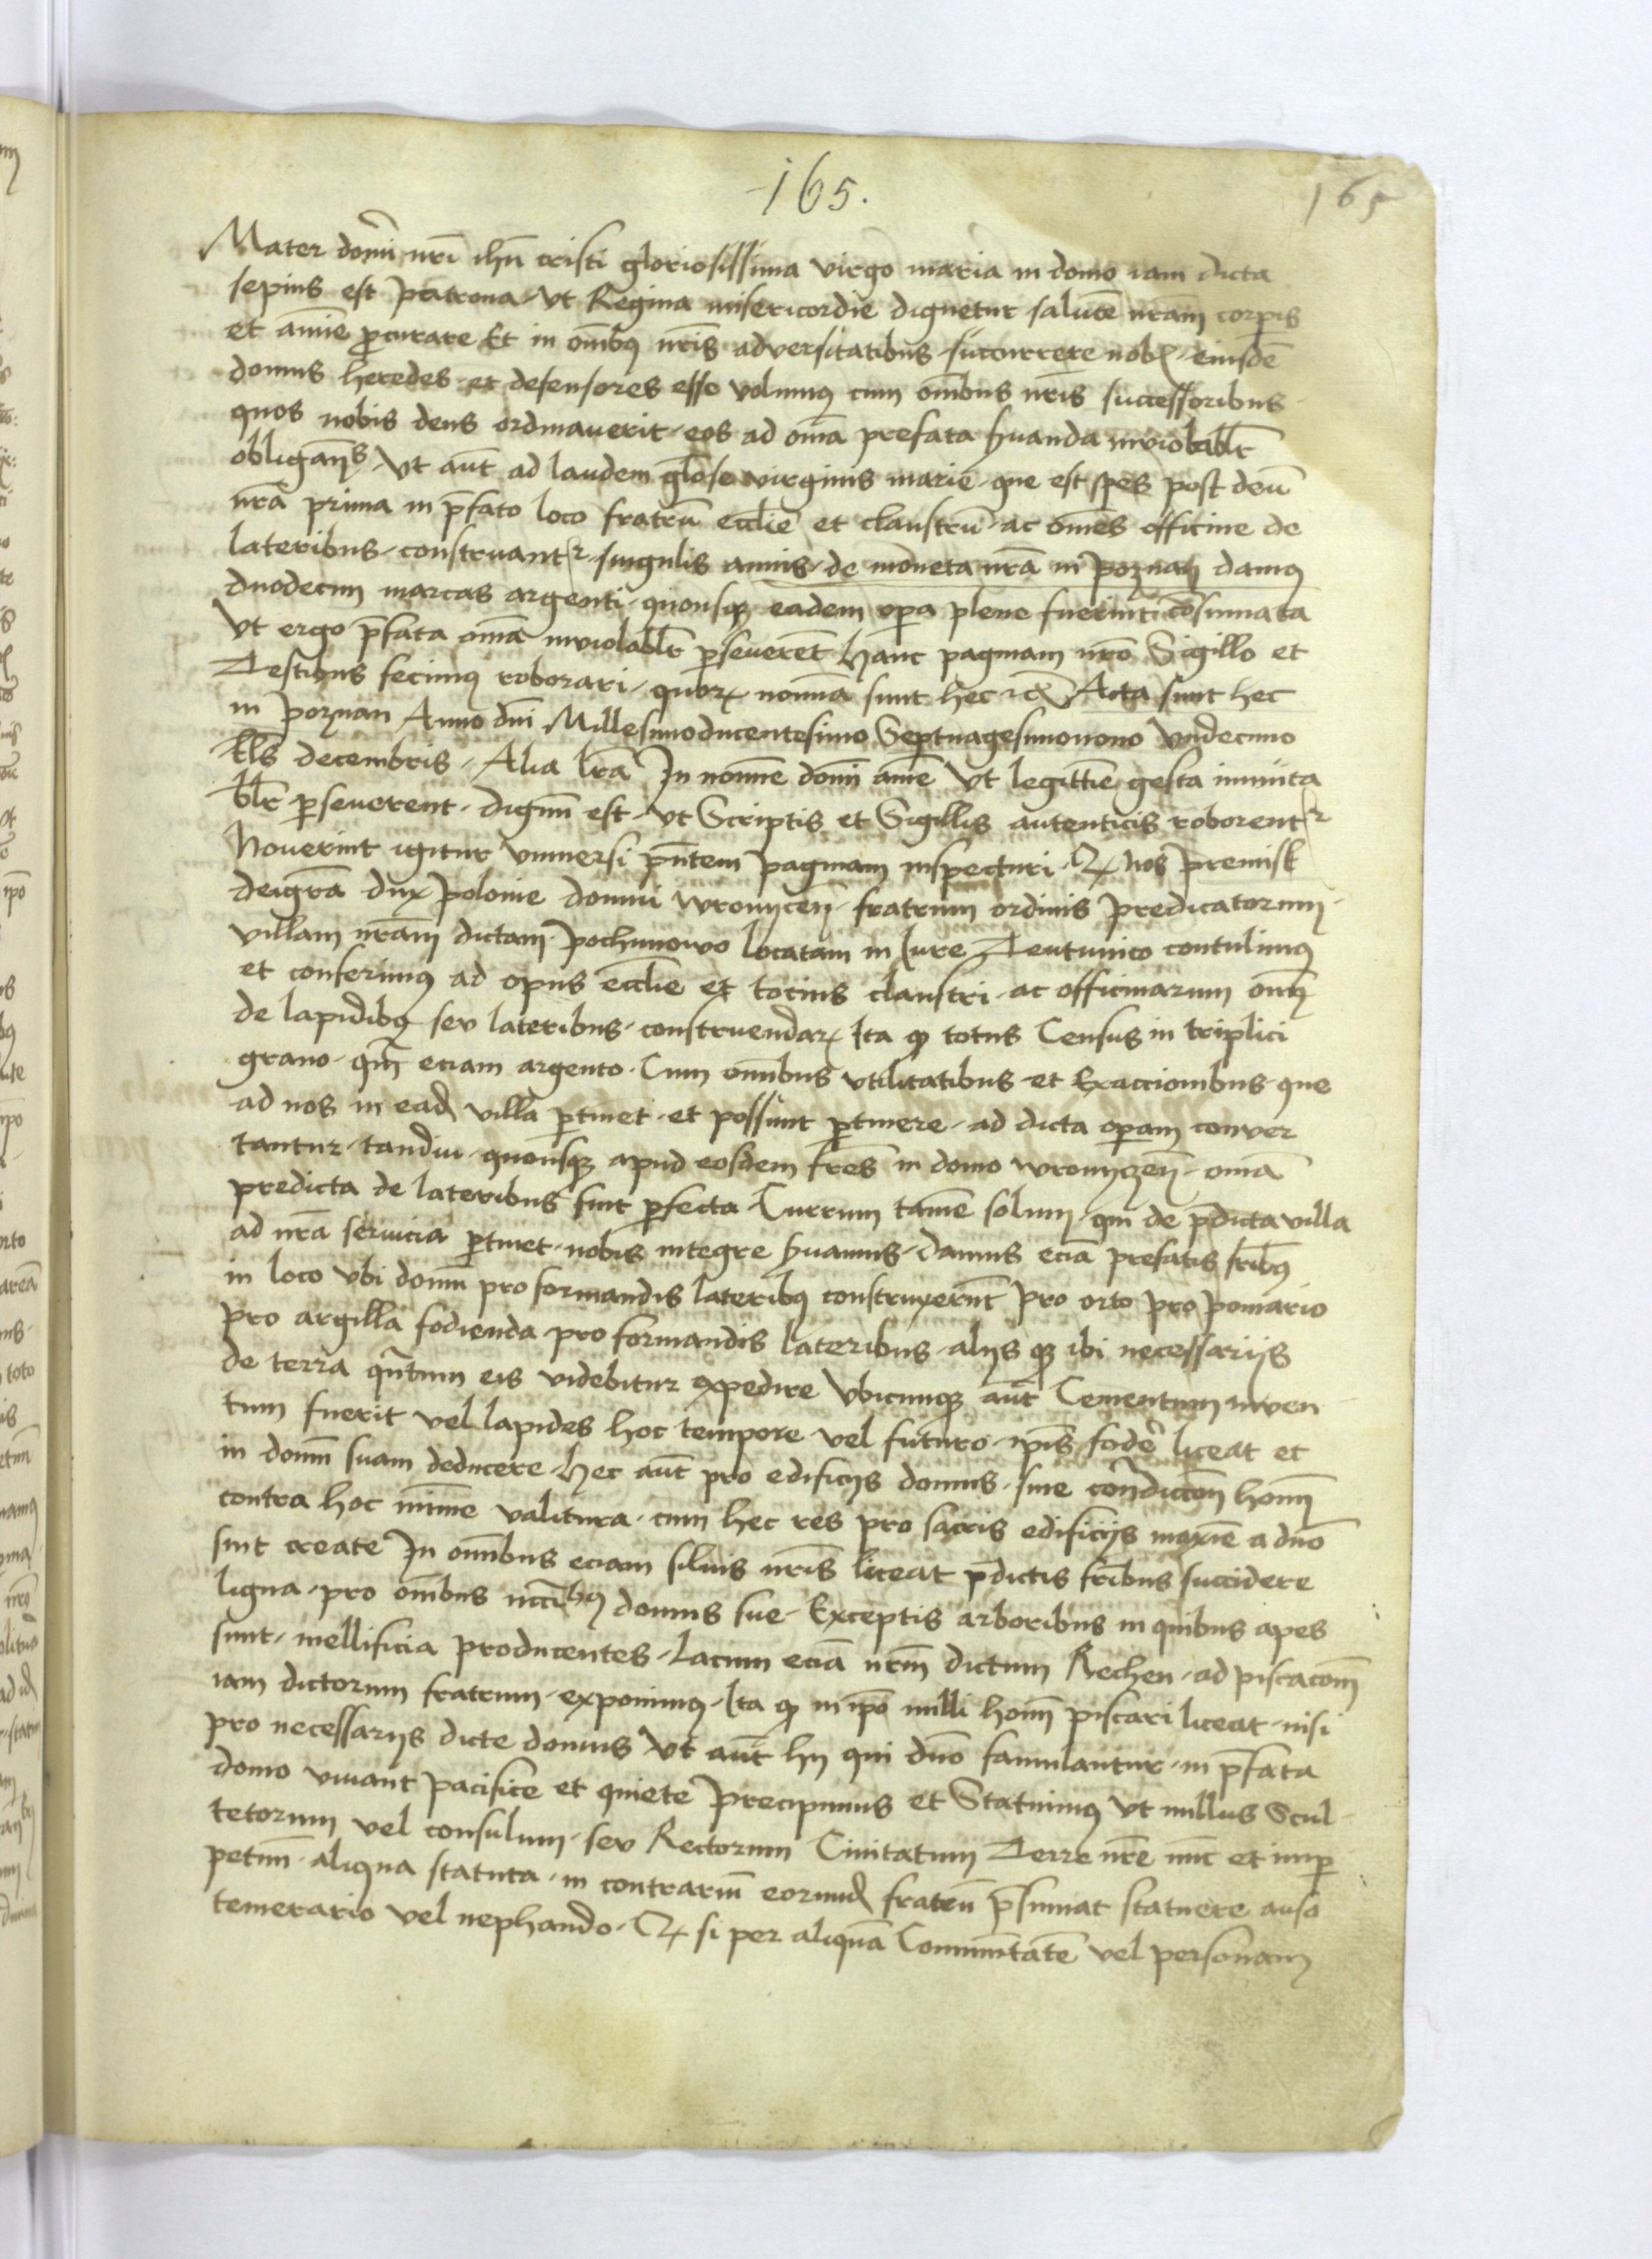 -165.
165
Mater domĩ nrĩ ihũ cristi gloriosissima virgo maria in domo iam dicta
sepius est patrona. Vt Regina misericordie dignetur salutẽ nrãm corpis
et anĩe pcurare Et in omĩbꝰ nrĩs adversitatibus succurrere nobꝭ. eiusdẽ
domus heredes et defensores esse volumꝰ cum omĩbus nrĩs successoribus
quos nobis deus ordinauerit. eos ad oĩna prefata huanda inviolablr̃
obligañs. Vt aut̃ ad laudem glõse virginis marie que est spes post deũ
nrã prima in p̃fato loco fratrũ eccłie et claustrũ ac omẽs officine de
lateribus construant᷑ singulis annis de moneta nrã in poznan damꝰ
duodecim marcas argenti. quousqꝫ eadem opa plene fuerint cõsumata
Vt ergo p̃fata oĩna inviolablr̃ pseverẽt hanc paginam nrõ Sigillo et
Testibus fecimꝰ roborari. quoꝝ noĩna sunt hec ꝛcꝭ Acta sunt hec
in poznan Anno dnĩ Millesimoducentesimo Septuagesimonono Vndecimo
kl̃s decembris. Alia lr̃a In noĩne domĩ amẽ Vt legittĩe gesta inmuta
blr̃ pseuerent. dignũ est. Vt Scriptis et Sigillis autenticis roborent᷑
Nouerint igitur vniuersi pñtem paginam inspecturi. Qꝫ nos premisł
deigrã dux polonie domui wronyceñ. fratrum ordinis predicatorum.
villam nrãm dictam pochunowo locatam in Iure Teutunico contulimꝰ
et conferimꝰ ad opus eccłie et tocius claustri ac officinarum oĩm
de lapidibꝰ sev lateribus construendaꝝ Ita qꝫ totus Census in triplici
grano. qm̃ eciam argento. Cum omĩbus vtilitatibus et Exaccionibus que
ad nos in eadꝭ villa ptinet. et possunt ptinere. ad dicta opam conver
tantur. tandiu quousqꝫ apud eosdem fr̃es in domo wronyczeñ. oĩna
predicta de lateribus sint pfecta Currum tamẽ solum qui de p̃dicta villa
ad nrã seruicia ptinet. nobis integre huamus. damus eciã prefatis fribꝰ
in loco vbi domũ pro formandis lateribꝰ construxerũt pro orto pro pomario
pro argilla fodienda pro formandis lateribus. alijs qꝫ ibi necessarijs
de terra qñtum eis videbitur expedire Vbicumqꝫ aut̃ Cementum inven
tum fuerit vel lapides hoc tempore vel futuro. ip̃is foder̃ liceat et
in domũ suam deducere. hec aut̃ pro edificijs domus. sine cõtradiccõn homĩ
contra hoc mĩme valitura. cum hec res pro sacris edificijs maxĩe a dno
sint create In omĩbus eciam siluis nrĩs liceat p̃dictis frĩbus succidere
ligna. pro omĩbus nccĩbꝰ domus sue. Exceptis arboribus in quibus apes
sunt. mellificia producentes. Lacum eciã nrm̃ dictum Rechen. ad piscacõm
iam dictorum fratrum exponimꝰ. Ita qꝫ in ip̃o nulli homĩ piscari liceat. nisi
pro necessarijs dicte domus Vt aut̃ hij qui dnõ famulantur. in p̃fata
domo viuant pacifice et quiete precipimus et Statuimꝰ Vt nullus Scul-
tetorum vel consulum. sev Rectorum Ciuitatum Terre nrẽ nũc et imp
petuũ. aliqua statuta. in contrariũ eorundꝭ fratrũ p̃sumat statuere auso
temerario vel nephando. Qꝫ si per aliquã Communitatẽ vel personam